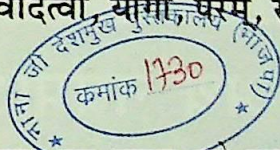 नाना जी देशमुख पुस्तकालय (भाजपा)
क्रमांक 1730